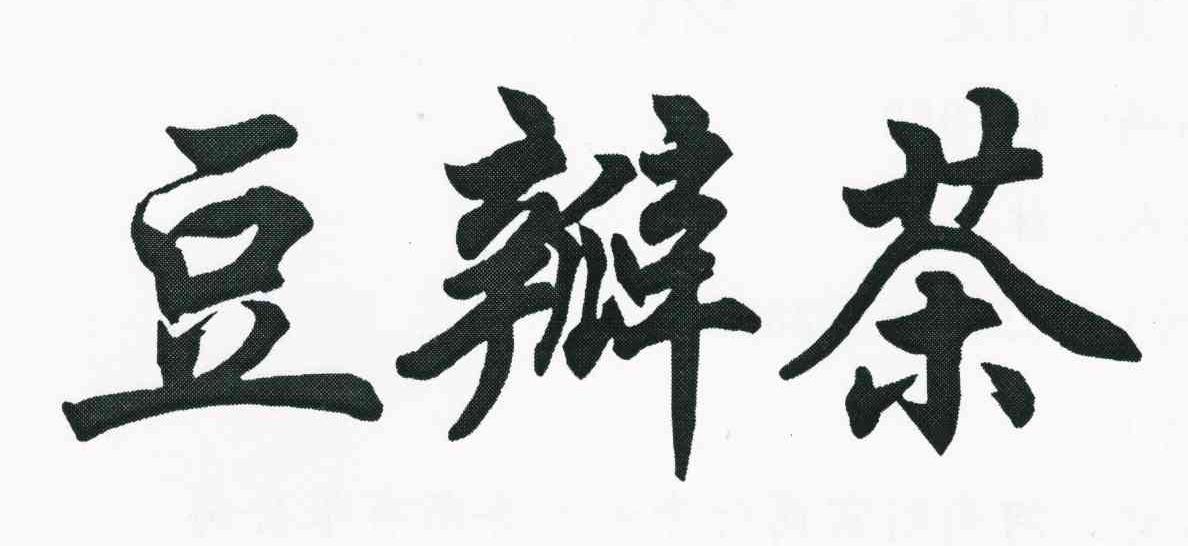 豆瓣茶